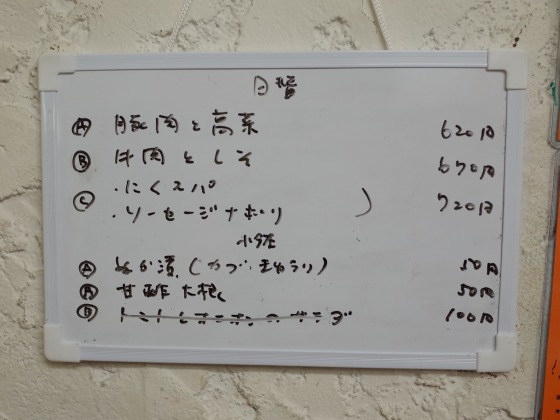 日替
Ⓐ 豚肉と高菜 620円
Ⓑ 牛肉としそ 670円
Ⓒ ・にくスパ
・ソーセージナポリ 720円
小鉢
Ⓐ ぬか漬(カブ・きゅうり) 50円
Ⓐ 甘酢大根 50円
Ⓑ トマトとオニオンのサラダ 100円